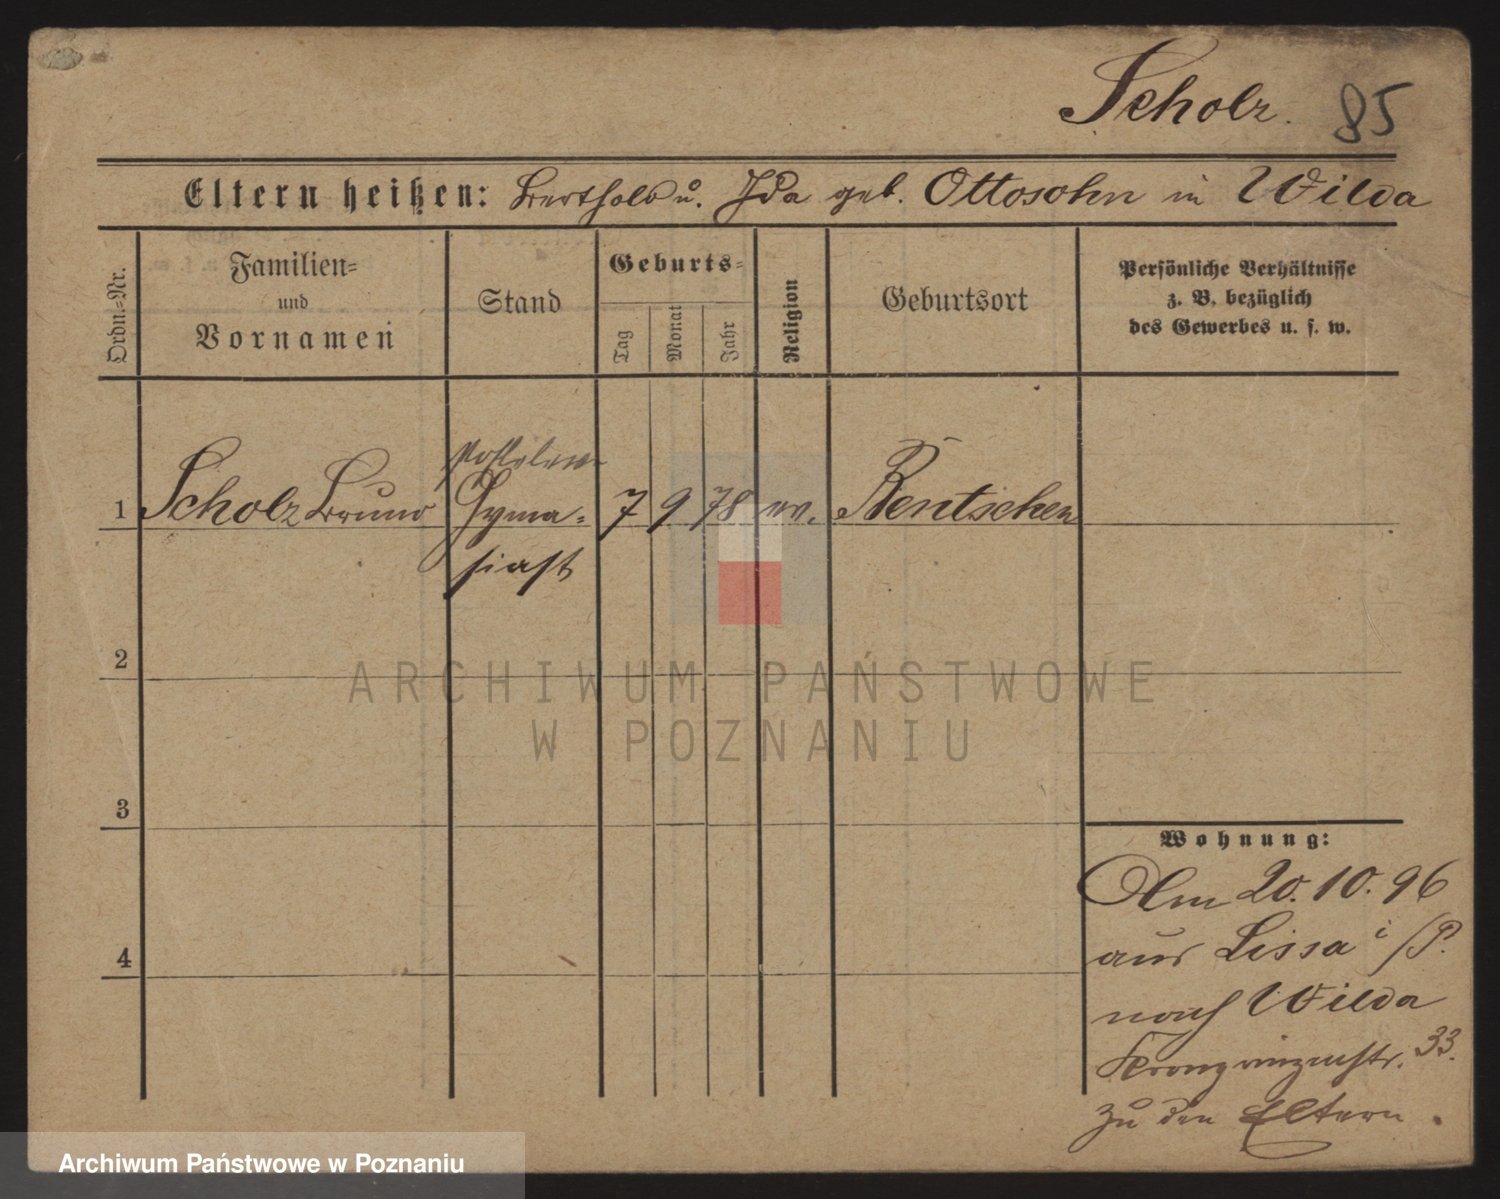 Scholz. 85
Eltern heißen: Berthold u. Ida geb. Ottosohn in Wilda
Ordn.=Nr.
Familien=
und
Vornamen
Stand
Geburts=
Tag
Monat
Jahr
Religion
Geburtsort
Persönliche Verhältnisse
z. B. bezüglich
des Gewerbes u. s. w.
Posteleve
1 Scholz Bruno Gymna= 7 9 78 ev. Bentschen
siast
2
3
4
Wohnung:
Am 20.10.96
aus Lissa i/P.
nach Wilda
Kronprinzenstr. 33.
zu den Eltern.
ARCHIWUM PAŃSTWOWE
W POZNANIU
Archiwum Państwowe w Poznaniu